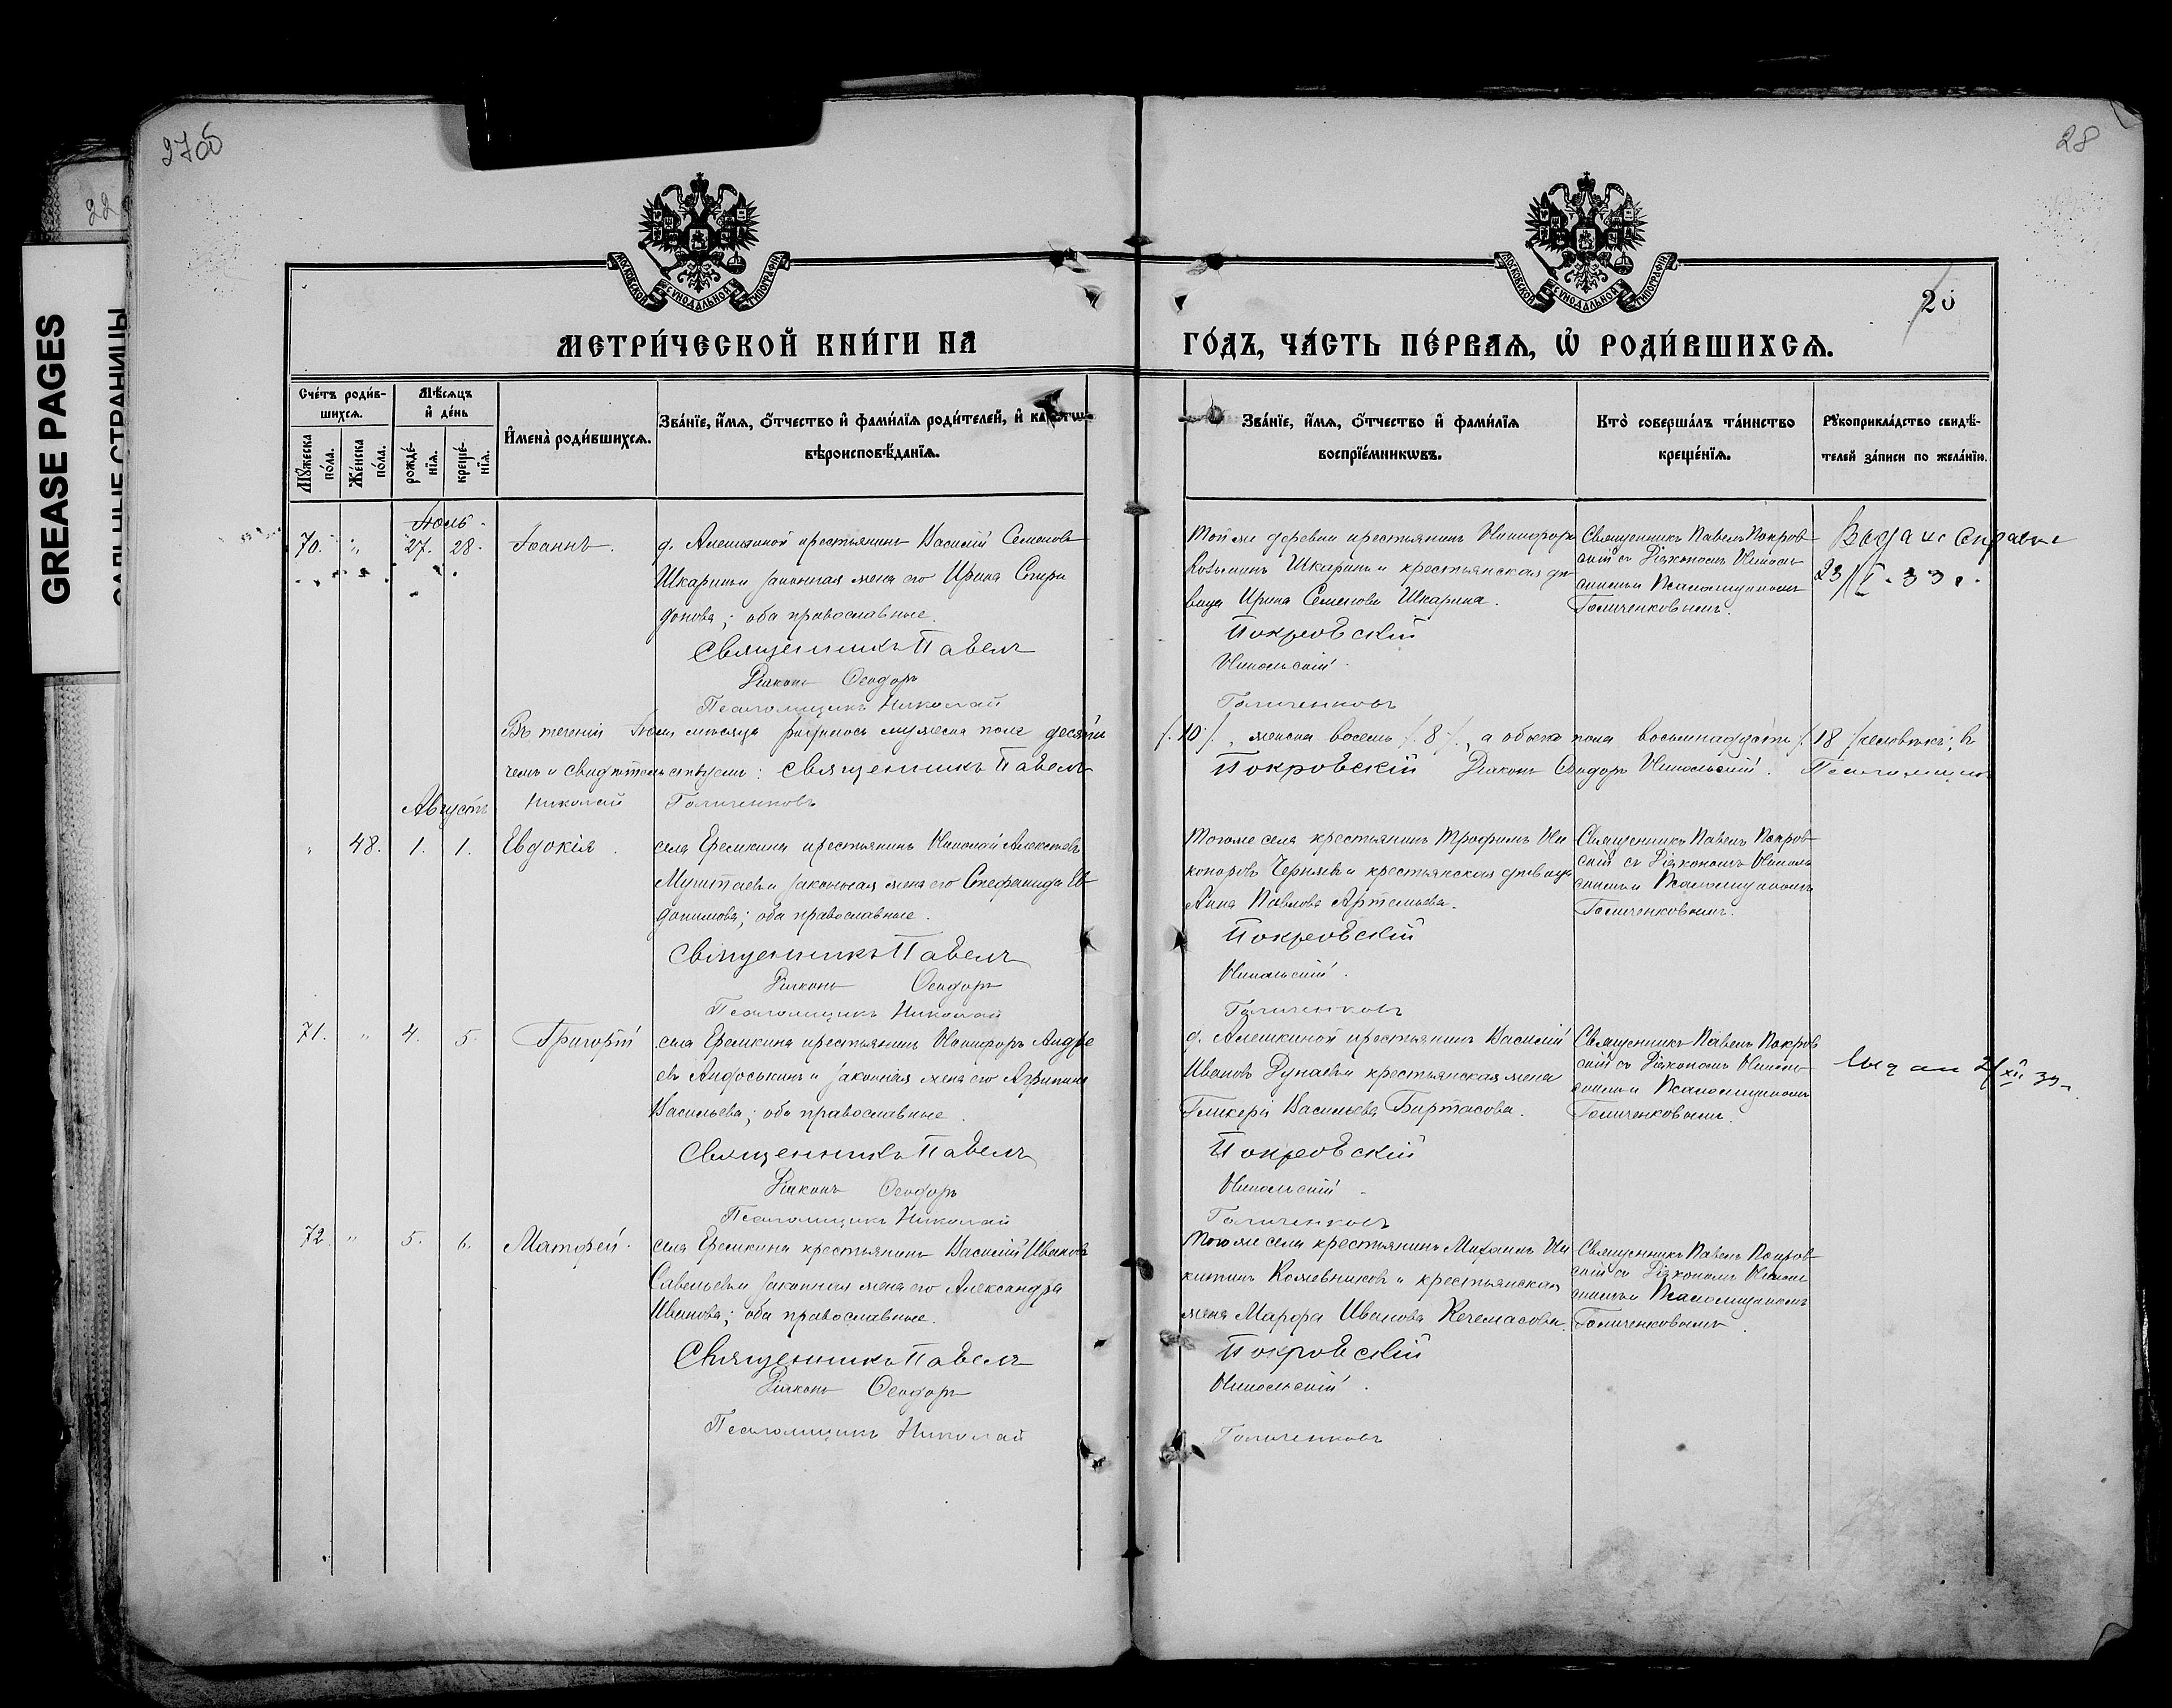 27об
28
22
GREASE PAGES
САЛЬНЫЕ СТРАНИЦЫ
МОСКОВСКОЙ СѴНОДАЛЬНОЙ ТИПОГРАФІИ
МОСКОВСКОЙ СѴНОДАЛЬНОЙ ТИПОГРАФІИ
20
МЕТРИ́ЧЕСКОЙ КНИ́ГИ НА
ГО́ДЪ, ЧА́СТЬ ПЕ́РВАѦ, Ѡ РОДИ́ВШИХСѦ.
Сче́тъ роди́в-
шихсѧ.
Мѣ́сѧцъ
и҆ де́нь
Мꙋ́жеска по́ла.
Же́нска по́ла.
рожде́-нїѧ.
креще́-нїѧ.
И҆мена̀ роди́вшихсѧ.
Зва́нїе, и҆́мѧ, ѻ҆́тчество и҆ фами́лїѧ роди́телей, и҆ какогѡ
вѣроисповѣ́данїѧ.
Зва́нїе, и҆́мѧ, ѻ҆́тчество и҆ фами́лїѧ
воспрїе́мникѡвъ.
Кто̀ соверша́лъ та́инство
креще́нїѧ.
Рꙋкоприкла́дство свидѣ́-
телей за́писи по жела́нїю.
Іюль.
70. " 27. 28. Іоаннъ.
д. Алешкиной крестьянинъ Василій Семеновъ
Шкаринъ и законная жена его Ирина Спири
донова; оба православные.
Священникъ Павелъ
Діаконъ Ѳеодоръ
Псаломщикъ Николай
Той же деревни крестьянинъ Никифоръ
Козьминъ Шкаринъ и крестьянская дѣ
вица Ирина Семенова Шкарина.
Покровскій
Никольскій.
Голиченковъ
Священникъ Павелъ Покров
скій съ Діакономъ Николь
скимъ и Псаломщикомъ
Голиченковымъ.
Выдана справка
23/I. 33 г.
Въ теченіи Іюля мѣсяца родилось мужеска пола десять
/. 10 /., женска восемь /. 8 /., а обоего пола восемнадцать /. 18 / человѣкъ; въ
чемъ и свидѣтельствуемъ: Священникъ Павелъ
Покровскій Діаконъ Ѳеодоръ Никольскій. Псаломщикъ
Николай Голиченковъ
Августъ
" 48. 1. 1. Евдокія.
села Еремкина крестьянинъ Николай Алексѣевъ
законная жена его Стефанида Ев
докимова; оба православные.
Священникъ Павелъ
Діаконъ Ѳеодоръ
Псаломщикъ Николай
Того же села крестьянинъ Трофимъ Ни
коноровъ Черняевъ и крестьянская дѣвица
Анна Павлова Артемьева.
Покровскій
Никольскій.
Голиченковъ
Священникъ Павелъ Покров
скій съ Діакономъ Николь
скимъ и Псаломщикомъ
Голиченковымъ.
71. " 4. 5. Григорій
села Еремкина крестьянинъ Никифоръ Андре
евъ Андоськинъ и законная жена его Агрипина
Васильева; оба православные.
Священникъ Павелъ
Діаконъ Ѳеодоръ
Псаломщикъ Николай
д. Алешкиной крестьянинъ Василій
Ивановъ Дунаевъ и крестьянская жена
Гликерія Васильева Биртасова.
Покровскій
Никольскій.
Голиченковъ
Священникъ Павелъ Покров
скій съ Діакономъ Николь
скимъ и Псаломщикомъ
Голиченковымъ.
72. " 5. 6. Матѳей.
села Еремкина крестьянинъ Василій Ивановъ
Савельевъ и законная жена его Александра
Иванова; оба православные.
Священникъ Павелъ
Діаконъ Ѳеодоръ
Псаломщикъ Николай
Того же села крестьянинъ Михаилъ Ни
китинъ Кожевниковъ и крестьянская
жена Марѳа Иванова Кечемасова.
Покровскій
Никольскій.
Голиченковъ
Священникъ Павелъ Покров
скій съ Діакономъ Николь
скимъ и Псаломщикомъ
Голиченковымъ.